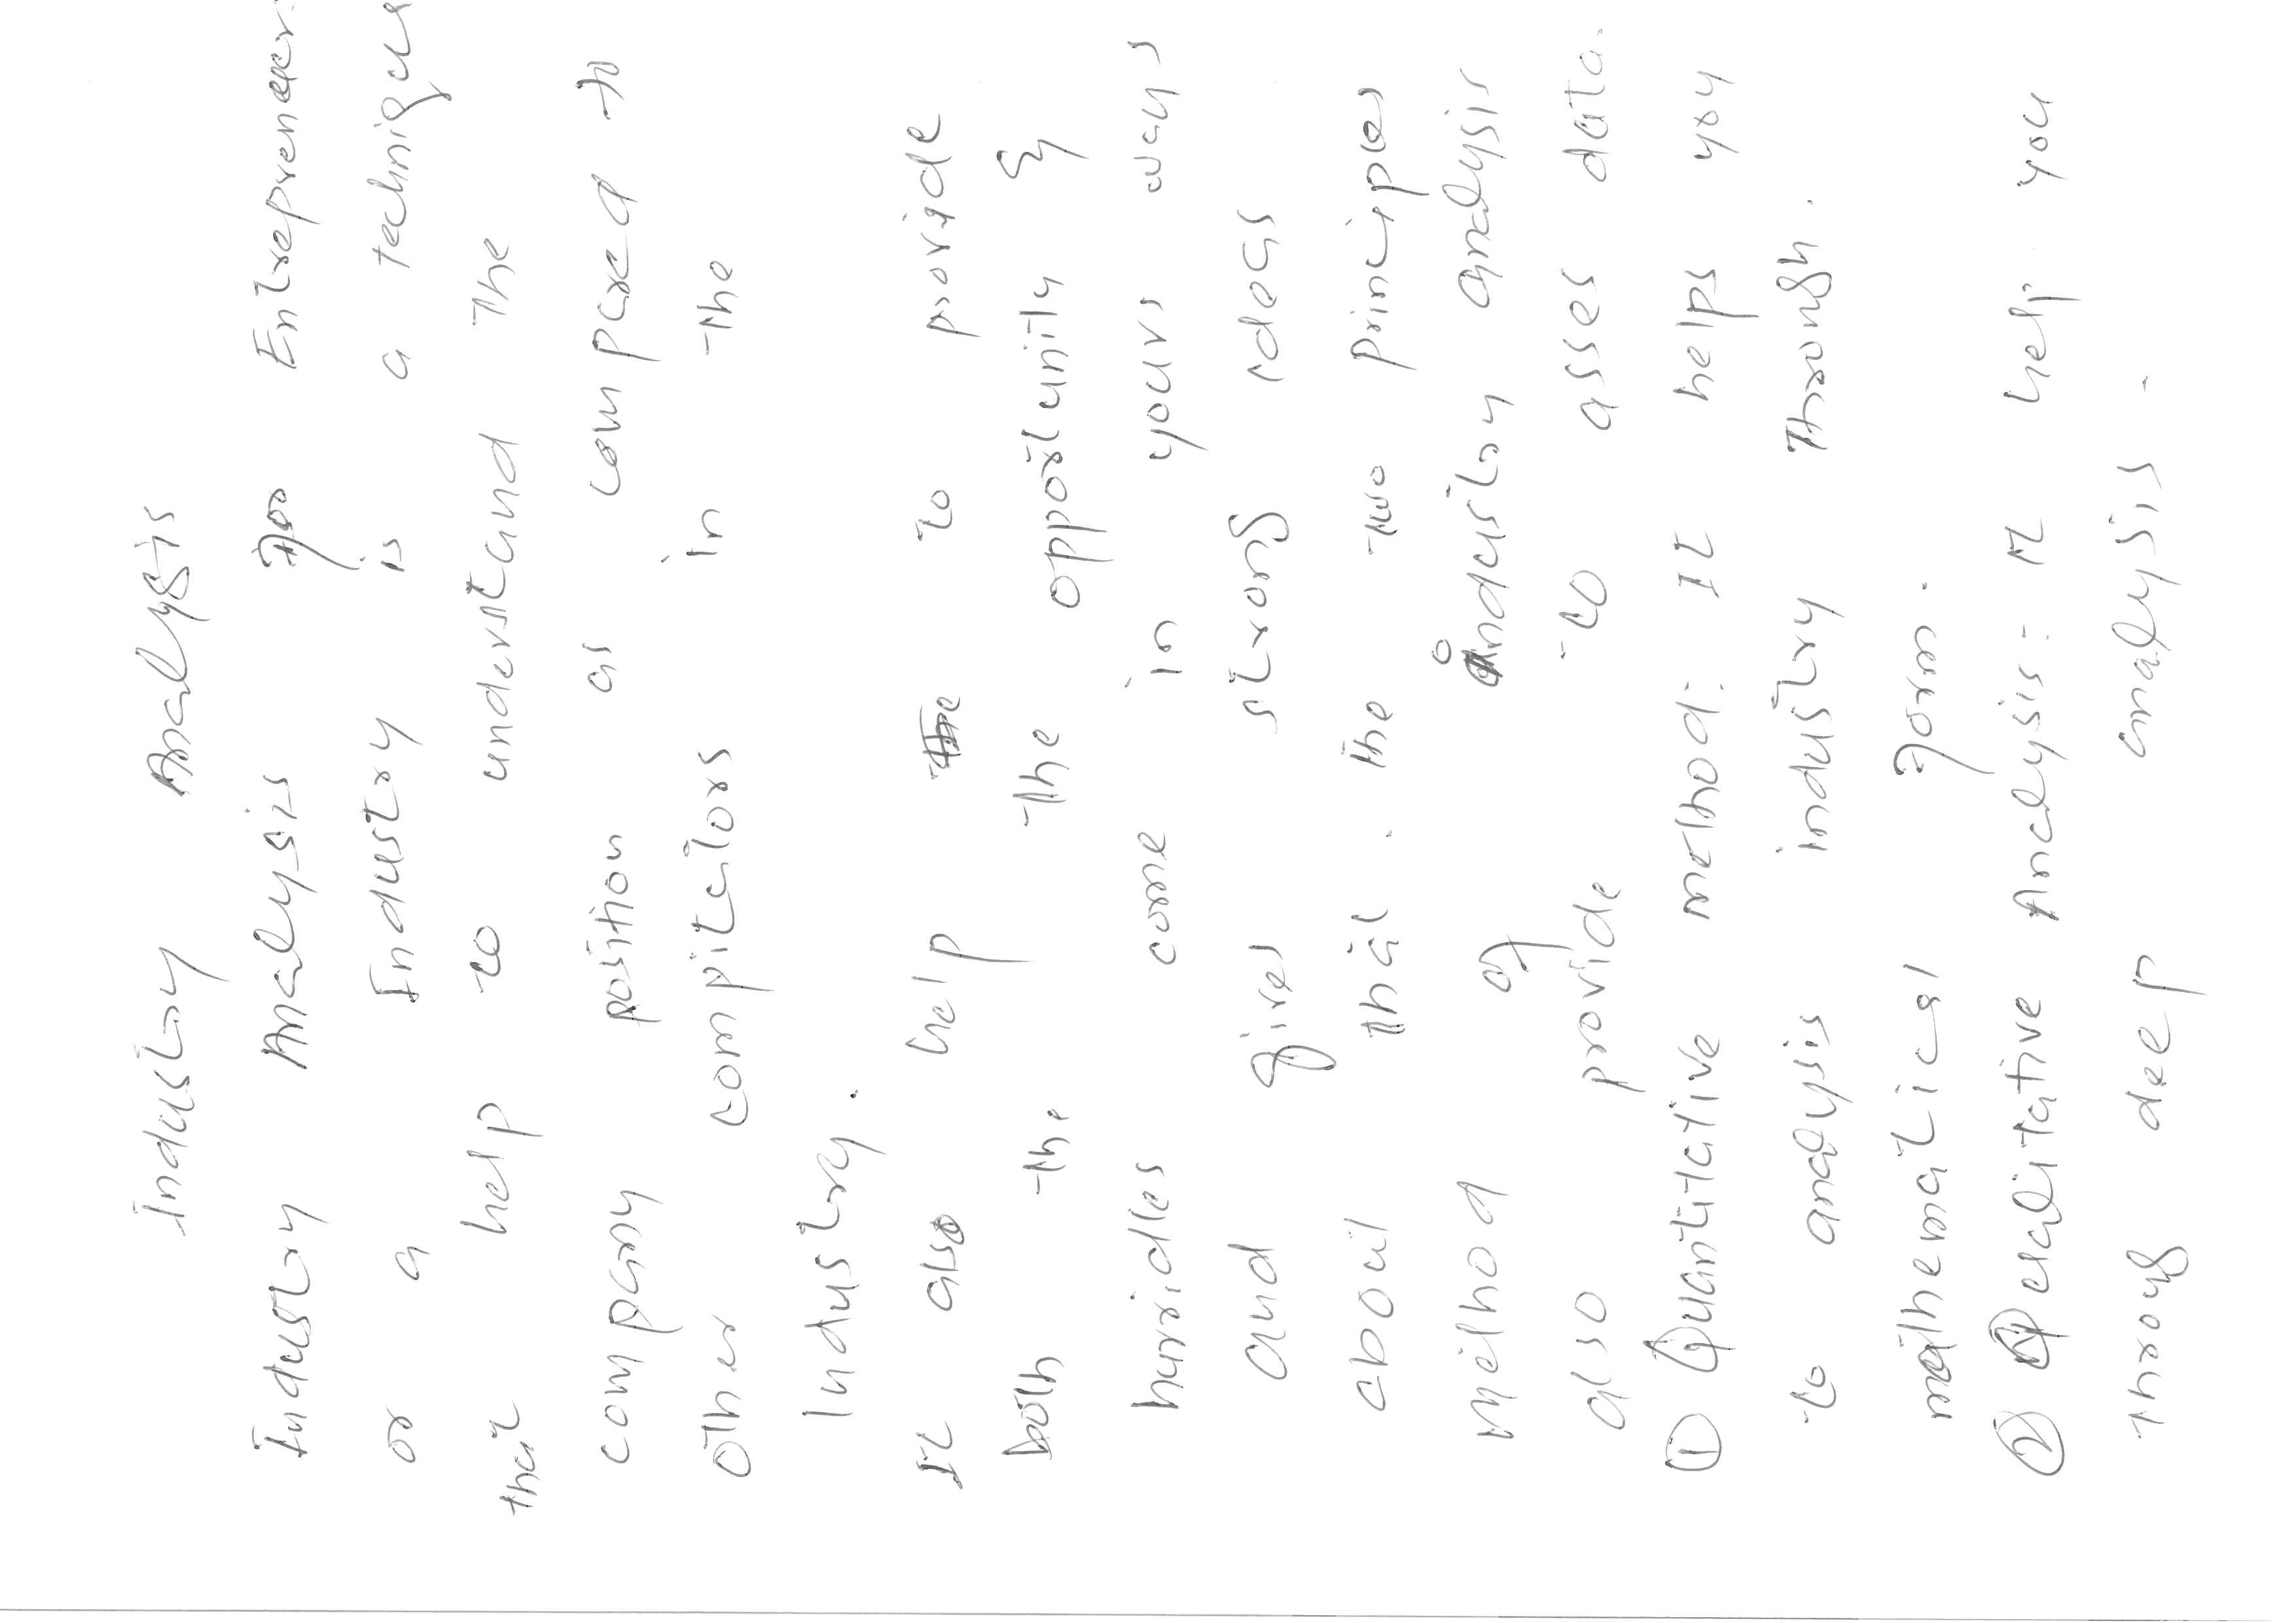 Industry Analysis
Industry Analysis for Entrepreneur
or a Industry is a technique
that help to understand the
company position as compared to
other compitators in the
Industry.
It also help to provide
both the the opportunity &
hurridles come in yours ways
and gives strong ideas
about that. the two principles
method of industry analysis
also provide to asses data.
① Quantitative method: It helps you
to analysis industry through.
mathematical form.
② Qualitative Analysis:- It help you
throug deep analysis -